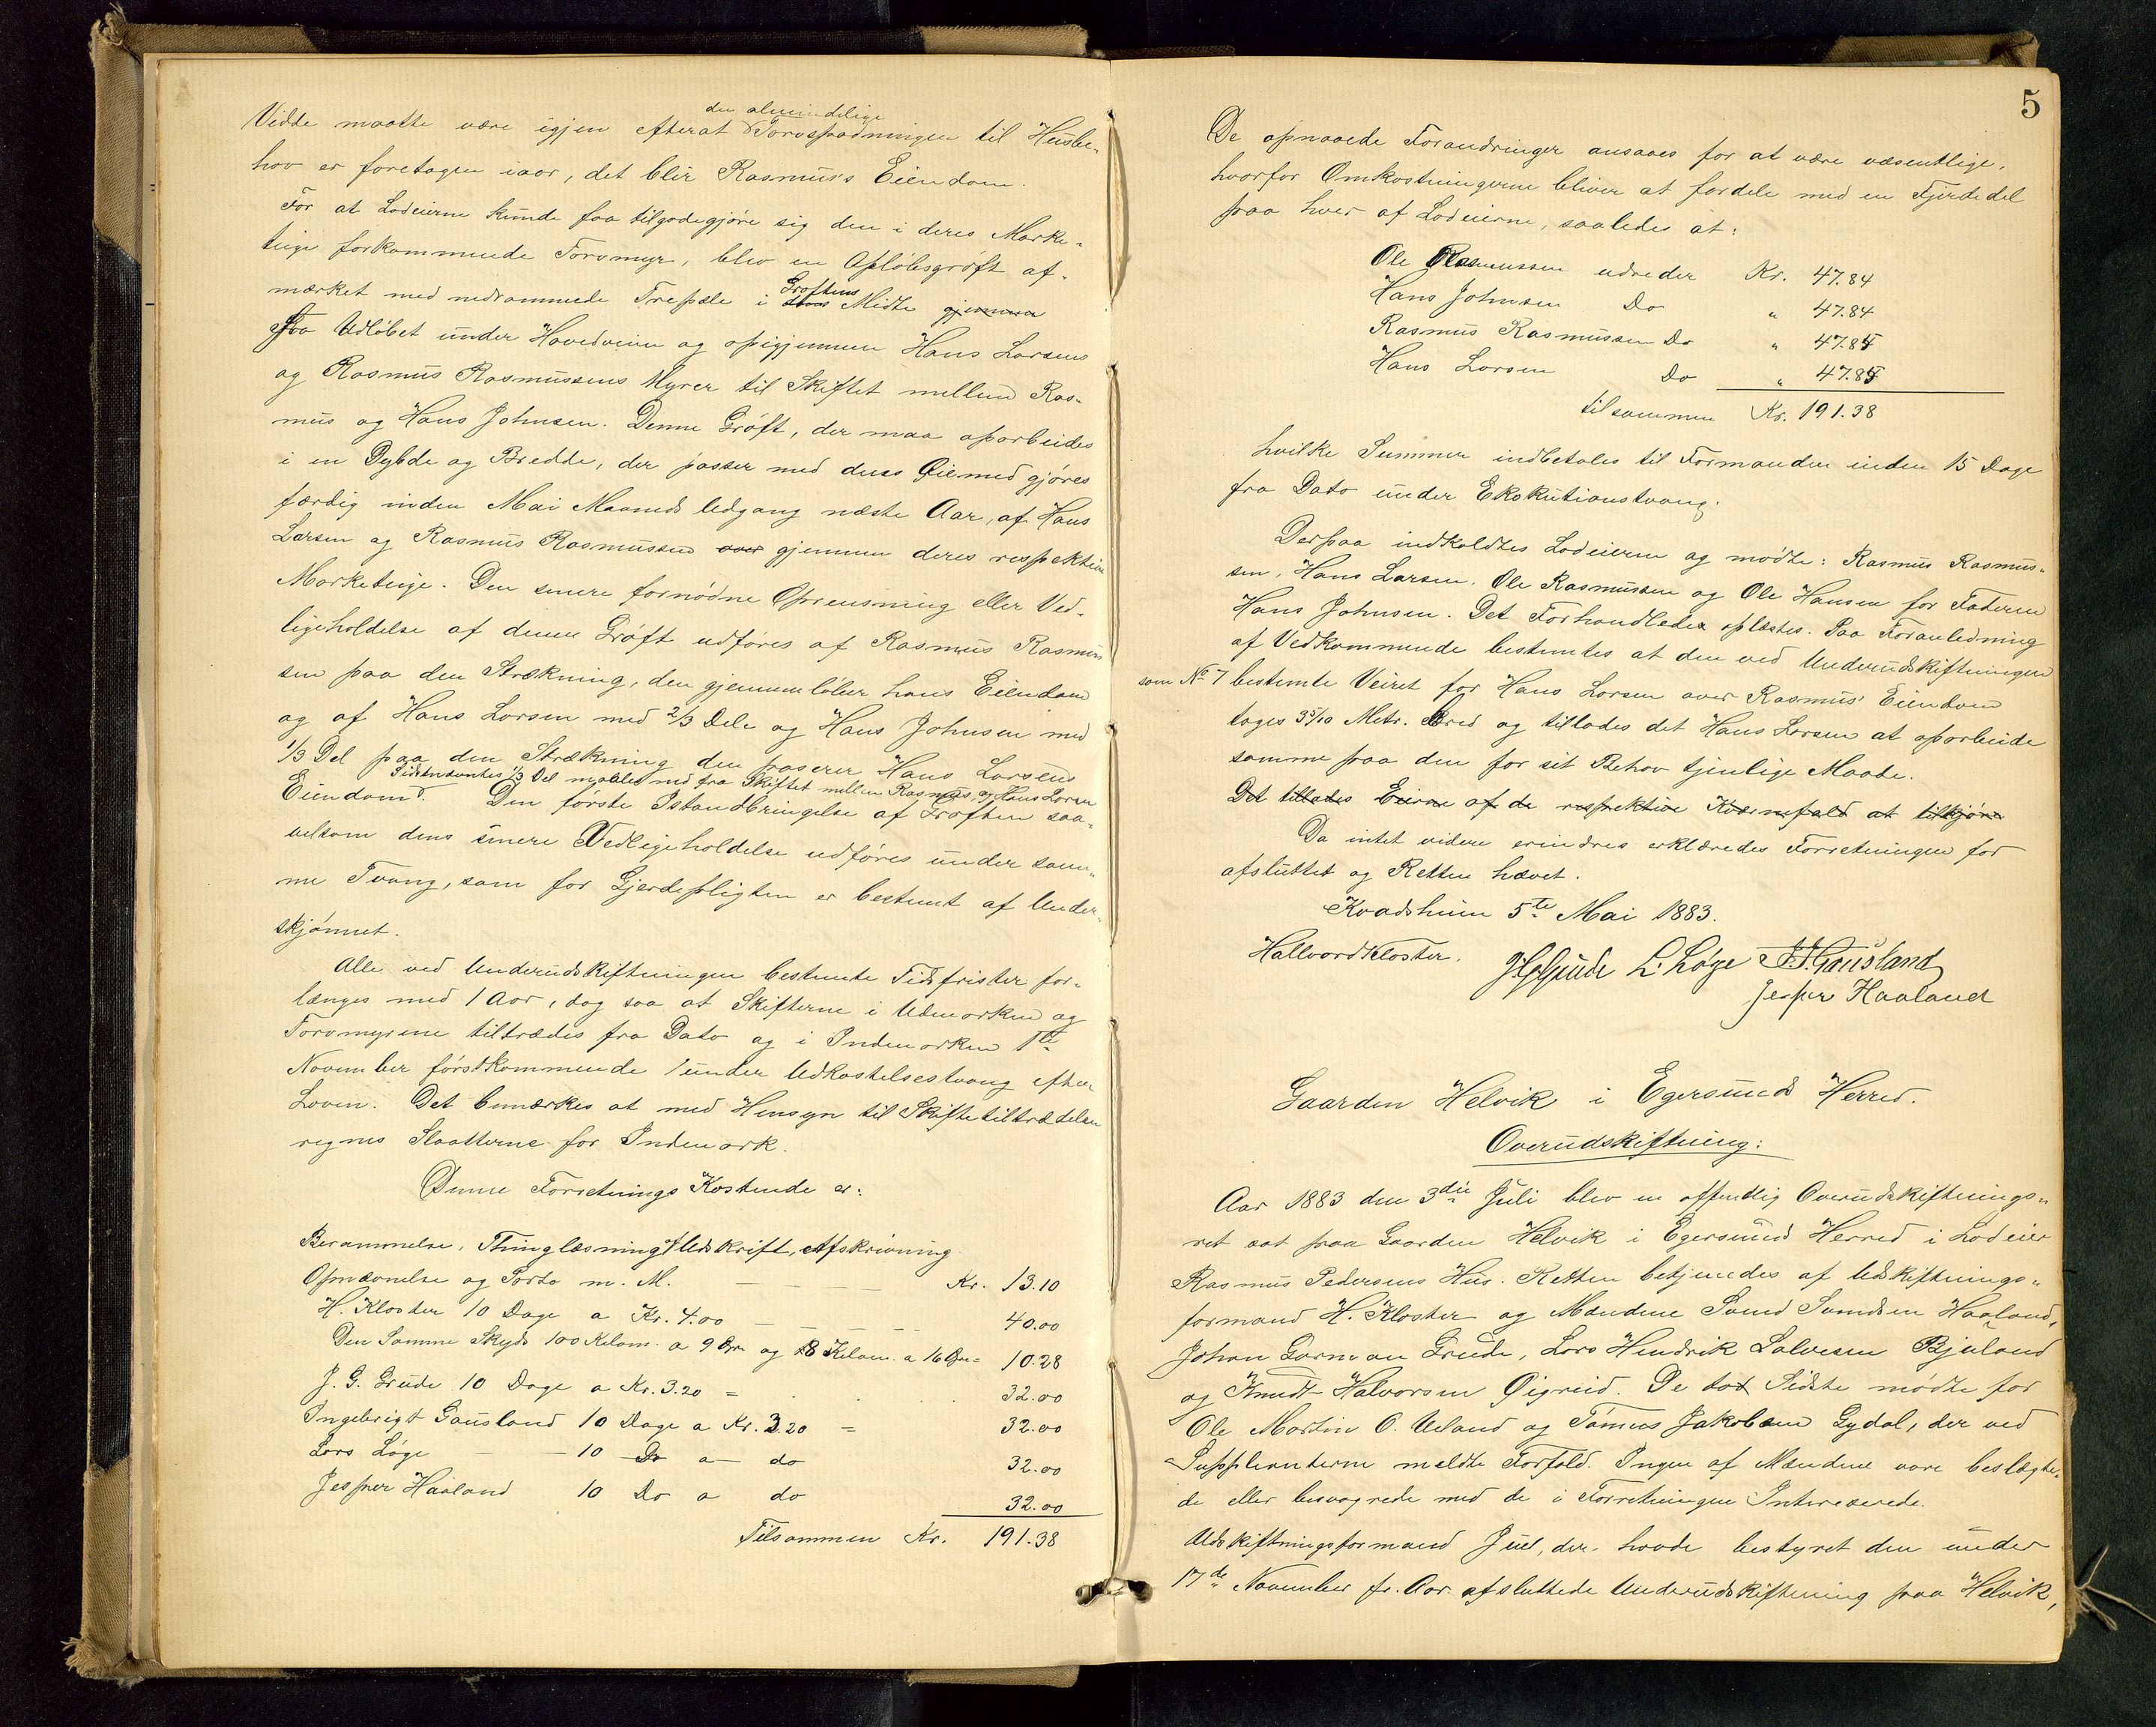 Vidde maatte være igjen efterat den almindelige Torvspadningen til Husbe-
hov er foretagen iaar, det blir Rasmus's Eiendom.
For at Lodeierne kunde faa tilgodegjøre sig den i deres Marke-
teige forkommende Torvmyr, blev en Afløbsgrøft af-
mærket med nedrammede Træpæle i Grøftens Midte gjennem
fra Udløbet under Hovedveien og opigjennem Hans Larsens
og Rasmus Rasmussens Myrer til Skiftet mellem Ras-
mus og Hans Johnsen. Denne Grøft, der maa oparbeides
i en Dybde og Bredde, der passer med dens Øiemed gjøres
færdig inden Mai Maaneds Udgang næste Aar, af Hans
Larsen og Rasmus Rasmussen over gjennem deres respektive
Marketeige. Den senere fornødne Oprensning eller Ved-
ligeholdelse af denne Grøft udføres af Rasmus Rasmus
sen paa den Strækning, den gjennemløber hans Eiendom
og af Hans Larsen med 2/3 Dele og Hans Johnsen med
1/3 Del paa den Strækning den paserer Hans Larsens
Sidstnævntes 1/3 Del maales ned fra Skiftet mellem Rasmus og Hans Larsen
Eiendom. Den første Istandbringelse af Grøften saa-
velsom dens senere Vedligeholdelse udføres under sam-
me Tvang, som for Gjerdepligten er bestemt af Under-
skjønnet.
Alle ved Underudskiftningen bestemte Tidsfrister for-
længes med 1 Aar, dog saa at Skifterne i Udmarken og
Torvmyrene tiltrædes fra Dato og i Indmarken 1te
November førstkommende under Udkastelsestvang efter
Loven. Det bemærkes at med Hensyn til Skiftetiltrædelsen
regnes Slaatterne for Indmark.
Denne Forretnings Kostende er:
Berammelse, Thinglæsning, Udskrift, Afskrivning
Opnævnelse og Porto m. M. Kr. 13.10
H. Kloster 10 Dage a Kr. 4.00 40.00
Den Samme Skyds 100 Kilom. a 9 Øre og 8 Kilom. a 16 Øre = 10.28
J. G. Grude 10 Dage a Kr. 3.20 = 32.00
Ingebrigt Gausland 10 Dage a Kr. 3.20 = 32.00
Lars Løge 10 Do a do 32.00
Jesper Haaland 10 Do a do 32.00
Tilsammen Kr. 191.38
5
De opnaaede Forandringer ansaaes for at være væsentlige,
hvorfor Omkostningerne bliver at fordele med en Fjerdedel
paa hver af Lodeierne, saaledes at:
Ole Rasmussen udreder Kr. 47.84
Hans Johnsen Do " 47.84
Rasmus Rasmussen Do " 47.85
Hans Larsen Do " 47.85
tilsammen Kr. 191.38
hvilke Summer indbetales til Formanden inden 15 Dage
fra Dato under Exekutionstvang.
Derpaa indkaldtes Lodeierne og mødte: Rasmus Rasmus-
sen, Hans Larsen, Ole Rasmussen og Ole Hansen for Faderen
Hans Johnsen. Det Forhandlede oplæstes. Paa Foranledning
af Vedkommende bestemtes at den ved Underudskiftningen
som No 7 bestemte Veiret for Hans Larsen over Rasmus' Eiendom
tages 3 5/10 Metr. Bred og tillades det Hans Larsen at oparbeide
samme paa den for sit Behov tjenlige Maade.
Det tillades Eierne af de respektive Kværnefald at tilkjøre
Da intet videre erindres erklæredes Forretningen for
afsluttet og Retten hævet.
Kvadsheim 5te Mai 1883.
Hallvard Kloster. J G Grude L. Løge I. Gausland
Jesper Haaland
Gaarden Helvik i Egersunds Herred.
Overudskiftning:
Aar 1883 den 3die Juli blev en offentlig Overudskiftnings-
ret sat paa Gaarden Helvik i Egersund Herred i Lodeier
Rasmus Pedersens Hus. Retten betjendes af Udskiftnings-
formand H. Kloster og Mændene Svend Svendsen Haaland,
Johan Garman Grude, Lars Hendrik Salvesen Bjuland
og Knudt Halvorsen Øigreid. De to Sidste mødte for
Ole Martin O. Ueland og Tønnes Jakobsen Gydal, der ved
Supplenterne meldte Forfald. Ingen af Mændene vare beslægte-
de eller besvogrede med de i Forretningen Interesserede.
Udskiftningsformand Juel, der havde bestyret den under
17de November f. Aar afsluttede Underudskiftning paa Helvik,